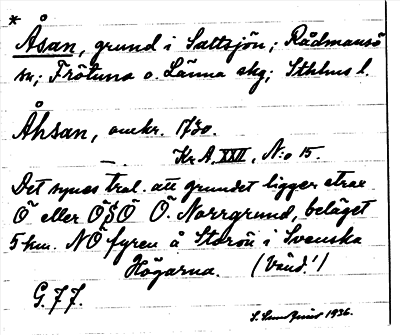 *
Åsan, grund i Saltsjön; Rådmansö
sn; Frötuna o. Länna skg; Sthlms l.
Åhsan, omkr. 1730.
— Kr. A. XXII, N:o 15.
Det synes trol. att grundet ligger strax
Ö eller ÖSÖ Ö. Norrgrund, beläget
5 km. NÖ fyren å Storön i Svenska
Högarna. (Vänd!)
G. 77.
1936.